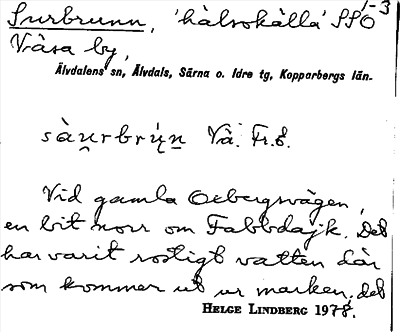 1-3
Surbrunn, 'hälsokälla' SSO
Våsa by,
Älvdalens sn, Älvdals, Särna o. Idre tg, Kopparbergs län.
Vå. Fr.E.
Vid gamla Oebergsvägen,
en bit norr om Fabbdajk. Det
har varit rostigt vatten där
som kommer ut ur marken, det
HELGE LINDBERG 1978.